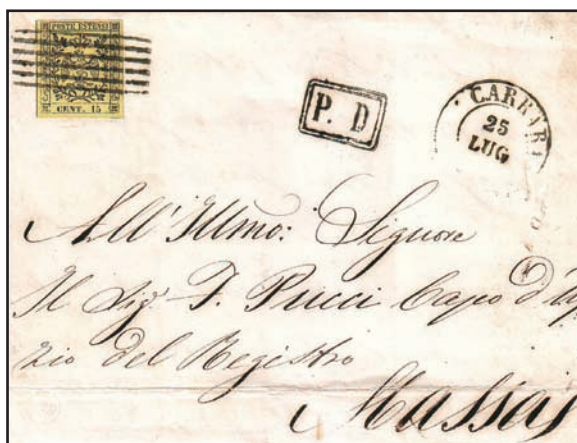 POSTE ESTENSI
CENT. 15
P. D
CARRARA
25
LUG
All' Illmo: Signore
Il Sigr. F. Pucci Capo d'Uf
zio del Registro
Massa